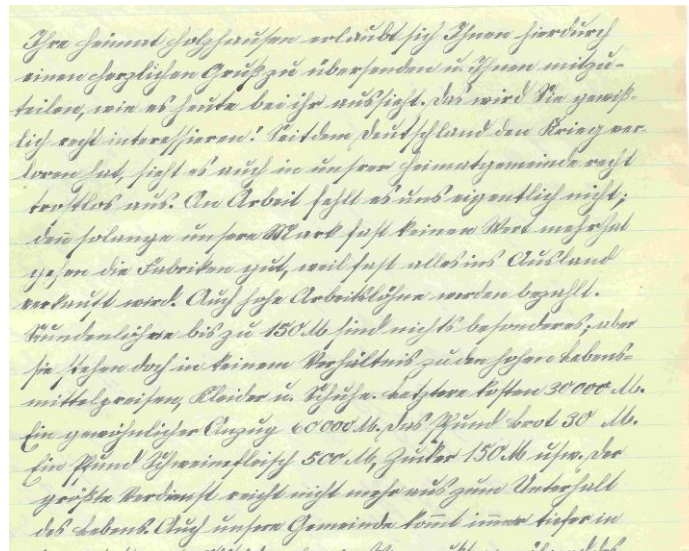 Ihre Heimat Holzhausen erlaubt sich Ihnen hierdurch
einen herzlichen Gruß zu übersenden u. Ihnen mitzu-
teilen, wie es heute bei ihr aussieht. Das wird Sie gewiß-
lich recht interessieren! Seitdem Deutschland den Krieg ver-
loren hat, sieht es auch in unsrer Heimatgemeinde recht
trostlos aus. An Arbeit fehlt es uns eigentlich nicht;
den̄ solange unsere Mark fast keinen Wert mehr hat
gehen die Fabriken gut, weil fast alles ins Ausland
verkauft wird. Auch hohe Arbeitslöhne werden bezahlt.
Stundenlöhne bis zu 150 M sind nichts besonderes, aber
sie stehen doch in keinem Verhältnis zu den hohen Lebens-
mittelpreisen, Kleider u. Schuhe. Letztere kosten 30000 M.
Ein gewöhnlicher Anzug 60000 M. Das Pfund Brot 30 M.
Ein Pfund Schweinefleisch 500 M, Zucker 150 M usw. Der
größte Verdienst reicht nicht mehr aus zum Unterhalt
des Lebens. Auch unsere Gemeinde kom̄t im̄er tiefer in